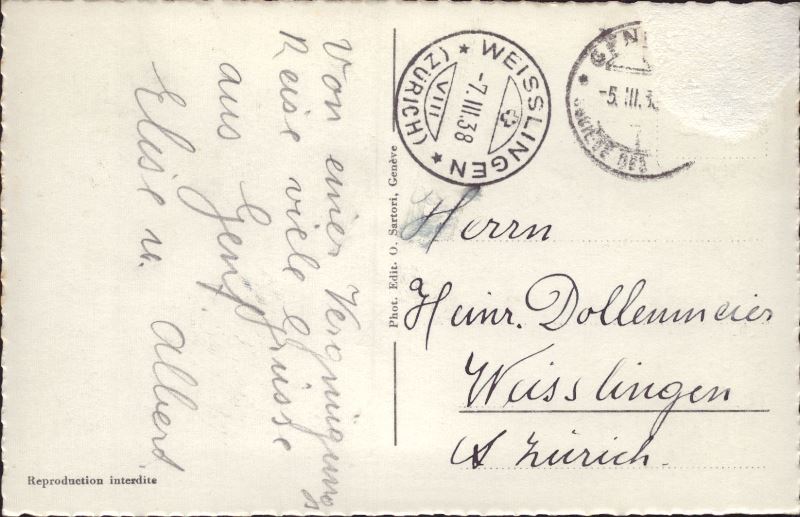 Von einer Vergnügungs
Reise viele Grüsse
aus Genf
Elise u. Albert
Reproduction interdite
Phot. Edit. O. Sartori, Genève
WEISSLINGEN (ZÜRICH)
-7.III.38
VIII
GEN
-5.III.3
SOCIÉTÉ DES
Herrn
Heinr. Dollenmeier
Weisslingen
Zürich.